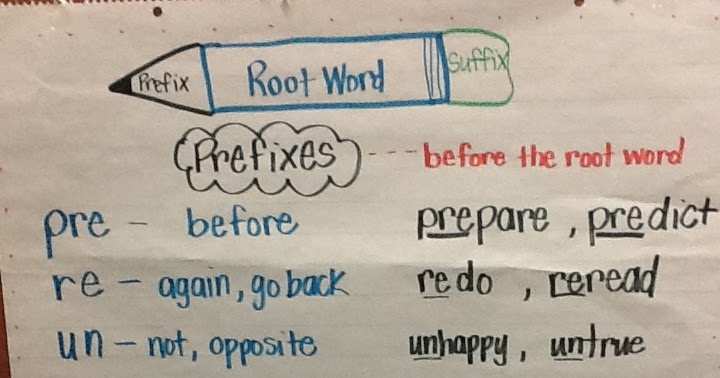 Prefix Root Word Suffix
Prefixes --- before the root word
pre - before prepare, predict
re - again, go back redo, reread
un - not, opposite unhappy, untrue